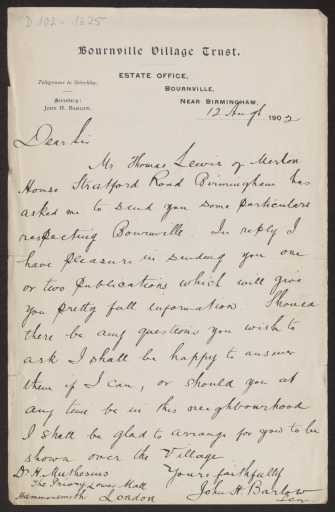 D 102-1625
Bournville Village Trust.
Telegrams to Selly Oak.
ESTATE OFFICE,
BOURNVILLE,
NEAR BIRMINGHAM.
Secretary:
JOHN H. BARLOW.
12 Augt 1902
Dear Sir
Mr Thomas Lewis of Merton
House Stratford Road Birmingham has
asked me to send you some particulars
respecting Bournville. In reply I
have pleasure in sending you one
or two publications which will give
you pretty full information. Should
there be any questions you wish to
ask I shall be happy to answer
them if I can, or should you at
any time be in this neighbourhood
I shall be glad to arrange for you to be
shown over the Village
Yours faithfully
John H. Barlow
Dr H. Muthesius
The Priory Lower Mall
Hammersmith London